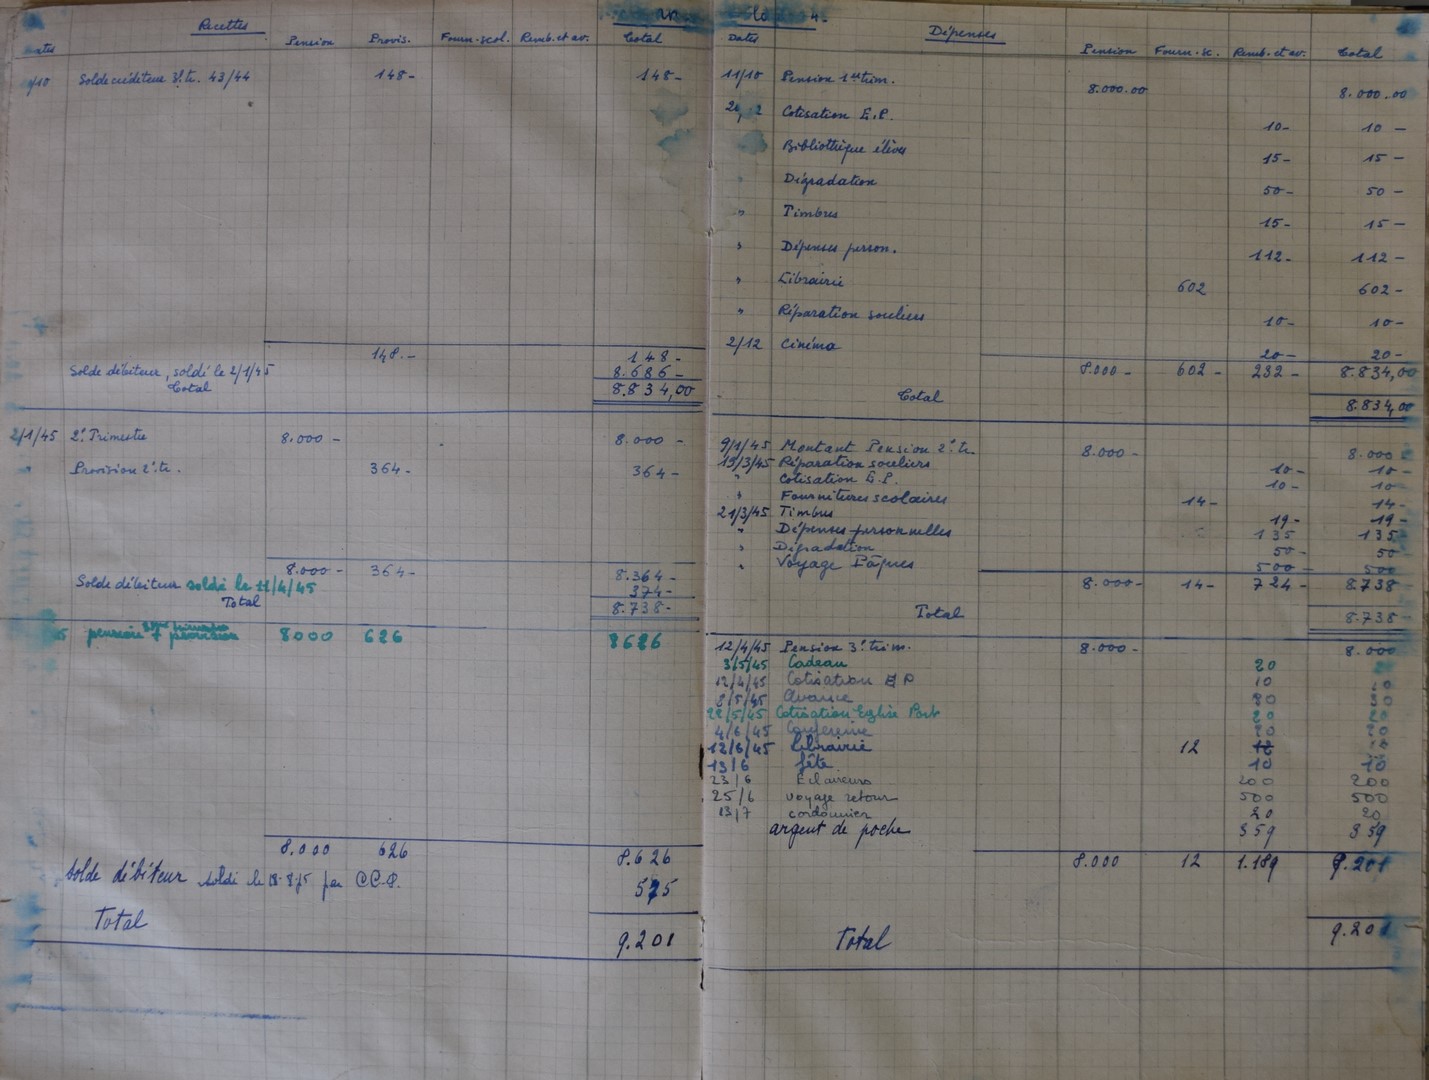 Recettes
Pension Provis. Fourn. scol. Remb. et av. Total
/10 Solde créditeur 3e. tr. 43/44 148 - 148 -
148. - 148 -
Solde débiteur, soldé le 2/1/45 8.686 -
Total 8.834,00
2/1/45 2e. Trimestre 8.000 - 8.000 -
" Provision 2e. tr. 364 - 364 -
8.000 - 364 - 8.364 -
Solde débiteur soldé le 11/4/45 374 -
Total 8.738 -
3ème trimestre
pension + provision 8000 626 8626
8.000 626 8.626
Solde débiteur soldé le par C.C.P. 575
Total 9.201
Dépenses
Dates Pension Fourn. sc. Remb. et av. Total
11/10 Pension 1er trim. 8.000.00 8.000.00
Cotisation E.P. 10 - 10 -
Bibliothèque élèves 15 - 15 -
" Dégradation 50 - 50 -
" Timbres 15 - 15 -
" Dépenses person. 112 - 112 -
" Librairie 602 602 -
" Réparation souliers 10 - 10 -
2/12 Cinéma 20 - 20 -
8.000 - 602 - 232 - 8.834,00
Total 8.834,00
9/1/45 Montant Pension 2e. tr. 8.000 - 8.000
19/3/45 Réparation souliers 10 - 10 -
" Cotisation E.P. 10 - 10 -
" Fournitures scolaires 14 - 14 -
21/3/45 Timbres 19 - 19 -
" Dépenses personnelles 135 135
" Dégradation 50 - 50
" Voyage Pâques 500 - 500
8.000 - 14 - 724 - 8.738
Total 8.738 -
12/4/45 Pension 3e. trim. 8.000 - 8.000
3/5/45 Cadeau 20
12/4/45 Cotisation E P 10
8/5/45 Avance
22/5/45 Cotisation Eglise Port 20 20
4/6/45 Conférence
12/6/45 Librairie 12 12
13/6 fête 10 10
23/6 Eclaireurs 200 200
25/6 voyage retour 500 500
13/7 cordonnier 20 20
argent de poche 359 359
8.000 12 1.189 9.201
Total 9.201